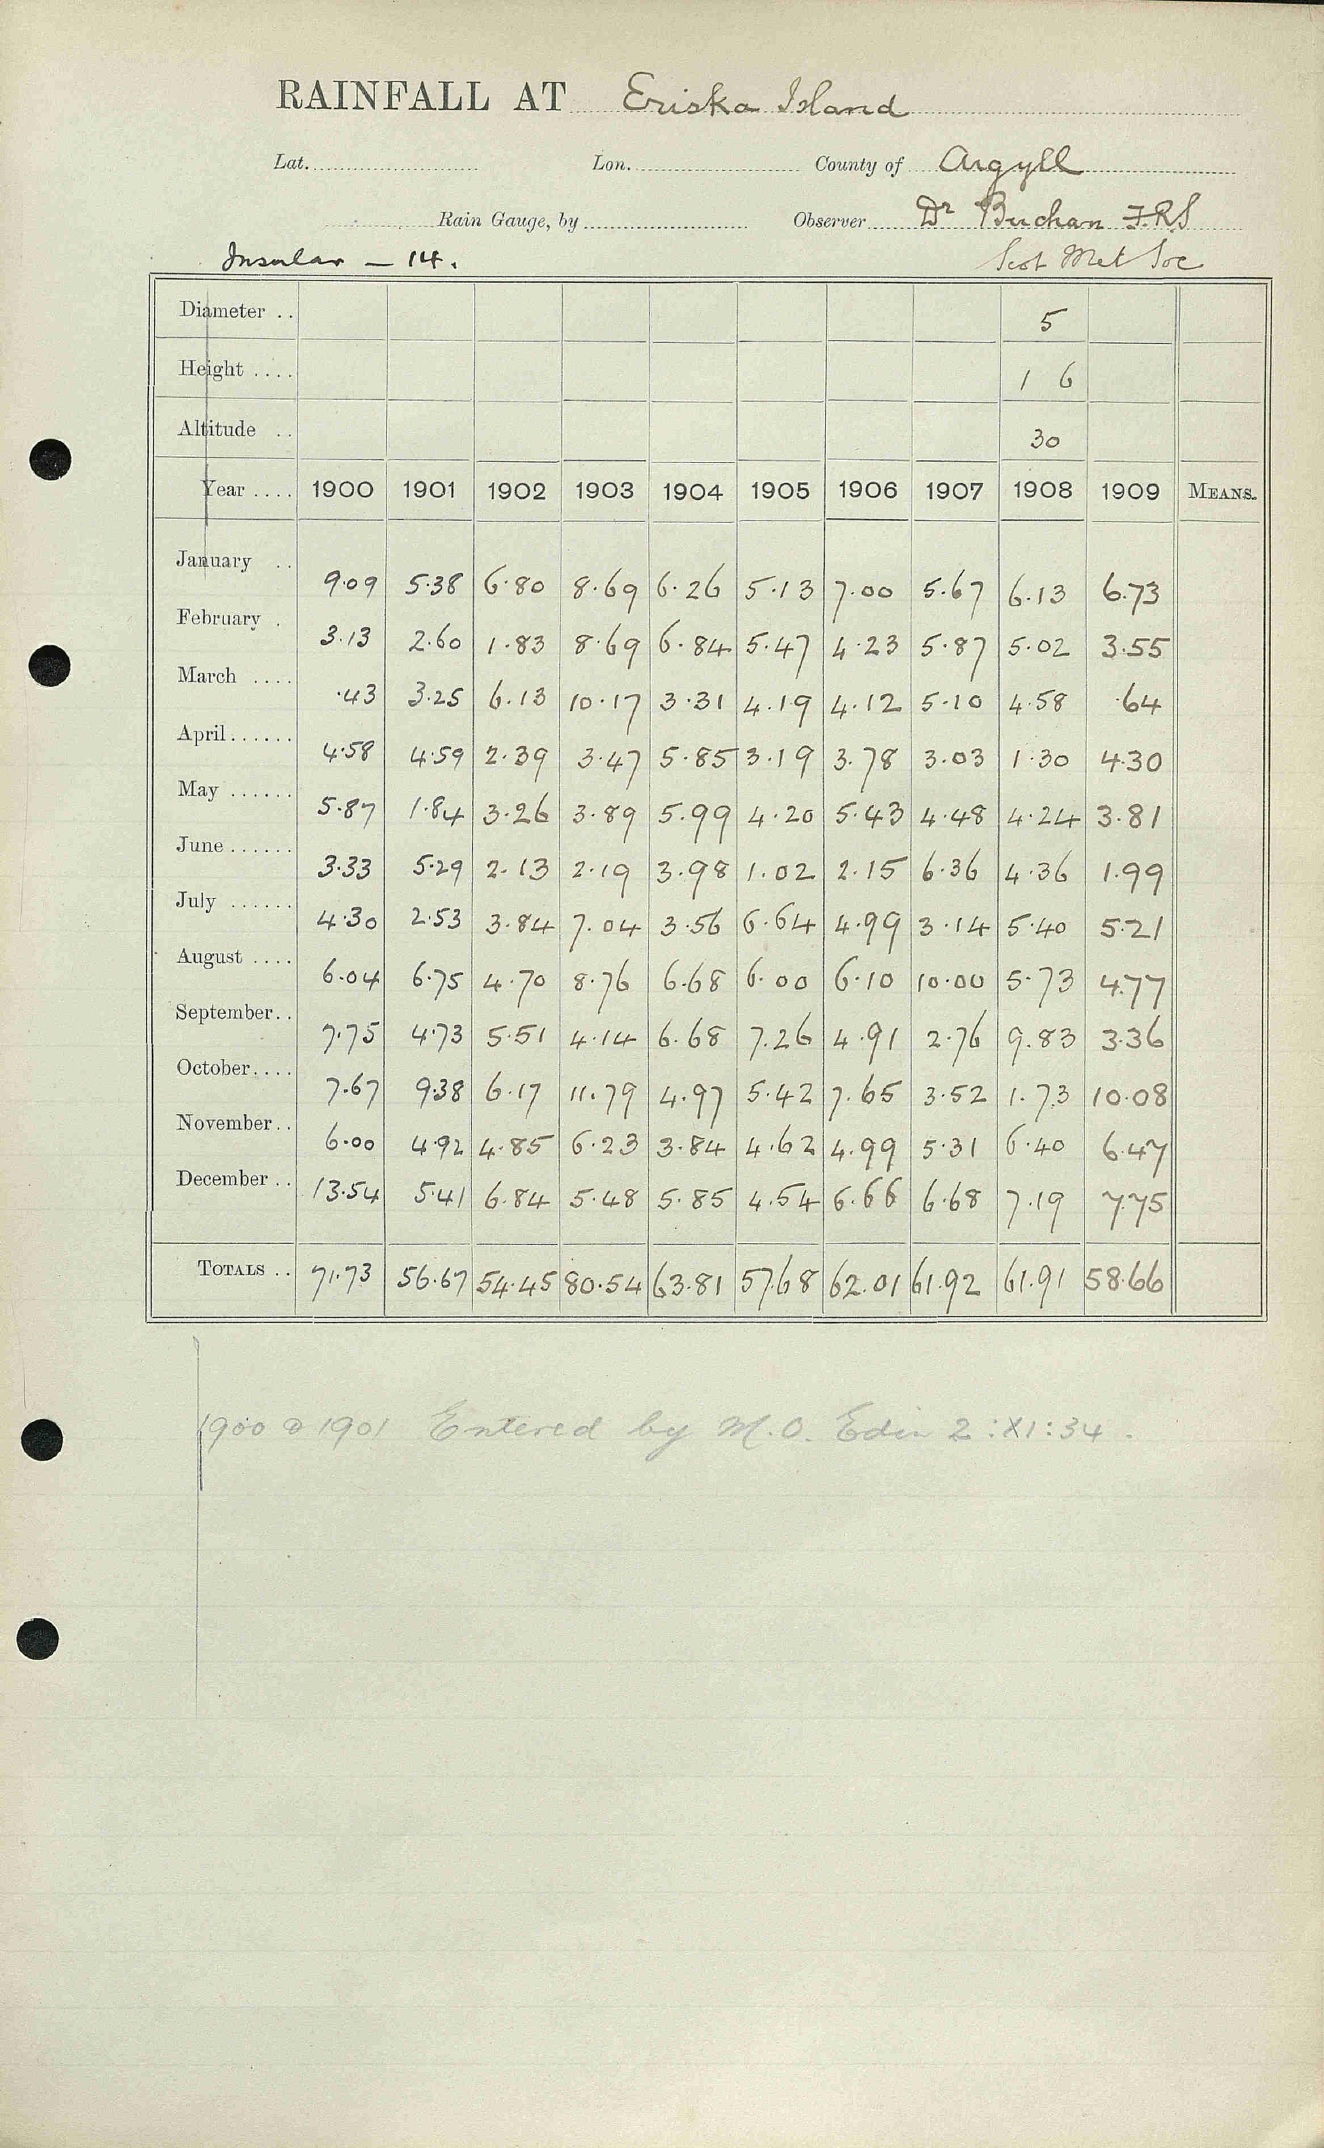 RAINFALL AT Eriska Island
Lat. Lon. County of Argyll
Rain Gauge, by Observer Dr Buchan F.R.S
Insular — 14. Scot Met Soc
Diameter .. 5
Height .... 1 6
Altitude .. 30
Year .... 1900 1901 1902 1903 1904 1905 1906 1907 1908 1909 MEANS.
January .. 9.09 5.38 6.80 8.69 6.26 5.13 7.00 5.67 6.13 6.73
February . 3.13 2.60 1.83 8.69 6.84 5.47 4.23 5.87 5.02 3.55
March .... .43 3.25 6.13 10.17 3.31 4.19 4.12 5.10 4.58 .64
April...... 4.58 4.59 2.39 3.47 5.85 3.19 3.78 3.03 1.30 4.30
May ...... 5.87 1.84 3.26 3.89 5.99 4.20 5.43 4.48 4.24 3.81
June...... 3.33 5.29 2.13 2.19 3.98 1.02 2.15 6.36 4.36 1.99
July ...... 4.30 2.53 3.84 7.04 3.56 6.64 4.99 3.14 5.40 5.21
August .... 6.04 6.75 4.70 8.76 6.68 6.00 6.10 10.00 5.73 4.77
September.. 7.75 4.73 5.51 4.14 6.68 7.26 4.91 2.76 9.83 3.36
October.... 7.67 9.38 6.17 11.79 4.97 5.42 7.65 3.52 1.73 10.08
November.. 6.00 4.92 4.85 6.23 3.84 4.62 4.99 5.31 6.40 6.47
December .. 13.54 5.41 6.84 5.48 5.85 4.54 6.66 6.68 7.19 7.75
TOTALS .. 71.73 56.67 54.45 80.54 63.81 57.68 62.01 61.92 61.91 58.66
1900 & 1901 Entered by M.O. Edin 2:XI:34.